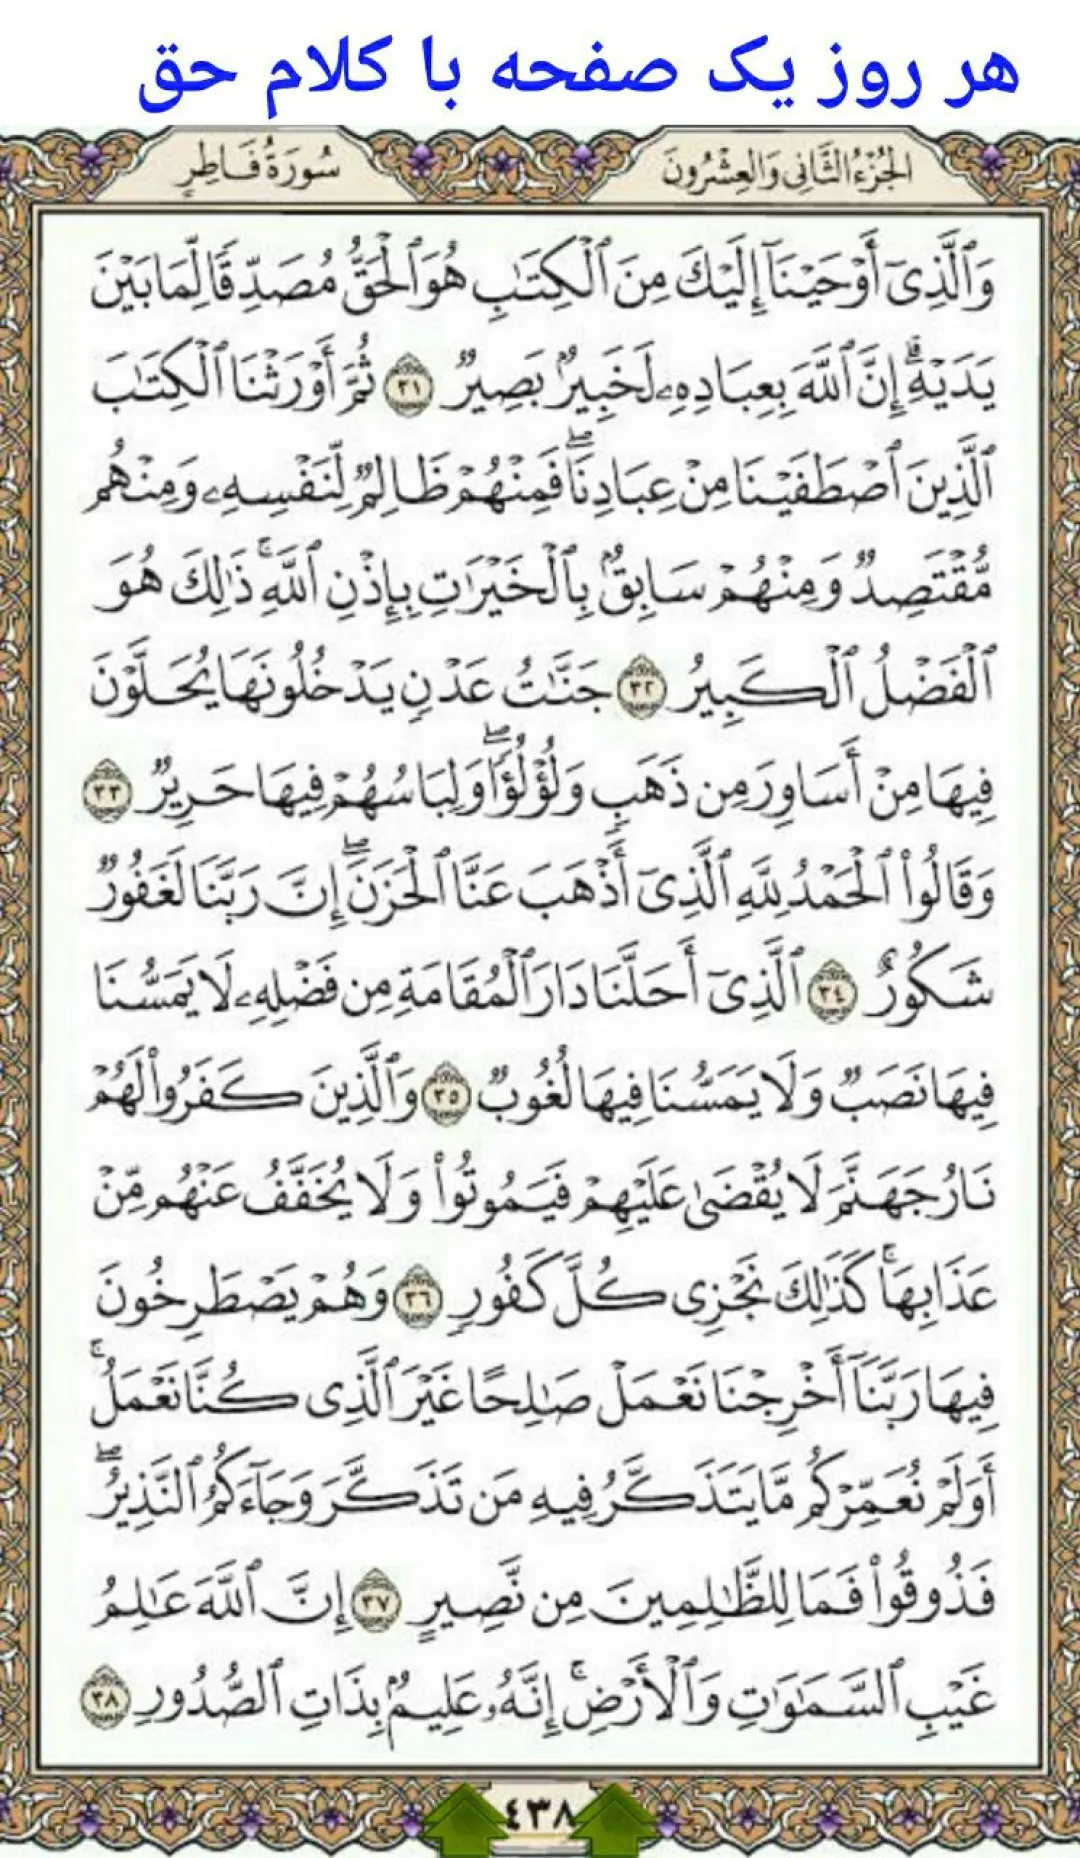 هر روز یک صفحه با کلام حق
الجُزْءُ الثَّانِي وَالعِشْرُونَ
سُورَةُ فَاطِرٍ
وَٱلَّذِىٓ أَوْحَيْنَآ إِلَيْكَ مِنَ ٱلْكِتَٰبِ هُوَ ٱلْحَقُّ مُصَدِّقًا لِّمَا بَيْنَ
يَدَيْهِ ۗ إِنَّ ٱللَّهَ بِعِبَادِهِۦ لَخَبِيرٌۢ بَصِيرٌ ٣١ ثُمَّ أَوْرَثْنَا ٱلْكِتَٰبَ
ٱلَّذِينَ ٱصْطَفَيْنَا مِنْ عِبَادِنَا ۖ فَمِنْهُمْ ظَالِمٌ لِّنَفْسِهِۦ وَمِنْهُم
مُّقْتَصِدٌ وَمِنْهُمْ سَابِقٌۢ بِٱلْخَيْرَٰتِ بِإِذْنِ ٱللَّهِ ۚ ذَٰلِكَ هُوَ
ٱلْفَضْلُ ٱلْكَبِيرُ ٣٢ جَنَّٰتُ عَدْنٍ يَدْخُلُونَهَا يُحَلَّوْنَ
فِيهَا مِنْ أَسَاوِرَ مِن ذَهَبٍ وَلُؤْلُؤًا ۖ وَلِبَاسُهُمْ فِيهَا حَرِيرٌ ٣٣
وَقَالُوا۟ ٱلْحَمْدُ لِلَّهِ ٱلَّذِىٓ أَذْهَبَ عَنَّا ٱلْحَزَنَ ۖ إِنَّ رَبَّنَا لَغَفُورٌ
شَكُورٌ ٣٤ ٱلَّذِىٓ أَحَلَّنَا دَارَ ٱلْمُقَامَةِ مِن فَضْلِهِۦ لَا يَمَسُّنَا
فِيهَا نَصَبٌ وَلَا يَمَسُّنَا فِيهَا لُغُوبٌ ٣٥ وَٱلَّذِينَ كَفَرُوا۟ لَهُمْ
نَارُ جَهَنَّمَ لَا يُقْضَىٰ عَلَيْهِمْ فَيَمُوتُوا۟ وَلَا يُخَفَّفُ عَنْهُم مِّنْ
عَذَابِهَا ۚ كَذَٰلِكَ نَجْزِى كُلَّ كَفُورٍ ٣٦ وَهُمْ يَصْطَرِخُونَ
فِيهَا رَبَّنَآ أَخْرِجْنَا نَعْمَلْ صَٰلِحًا غَيْرَ ٱلَّذِى كُنَّا نَعْمَلُ ۚ
أَوَلَمْ نُعَمِّرْكُم مَّا يَتَذَكَّرُ فِيهِ مَن تَذَكَّرَ وَجَآءَكُمُ ٱلنَّذِيرُ ۖ
فَذُوقُوا۟ فَمَا لِلظَّٰلِمِينَ مِن نَّصِيرٍ ٣٧ إِنَّ ٱللَّهَ عَٰلِمُ
غَيْبِ ٱلسَّمَٰوَٰتِ وَٱلْأَرْضِ ۚ إِنَّهُۥ عَلِيمٌۢ بِذَاتِ ٱلصُّدُورِ ٣٨
٤٣٨